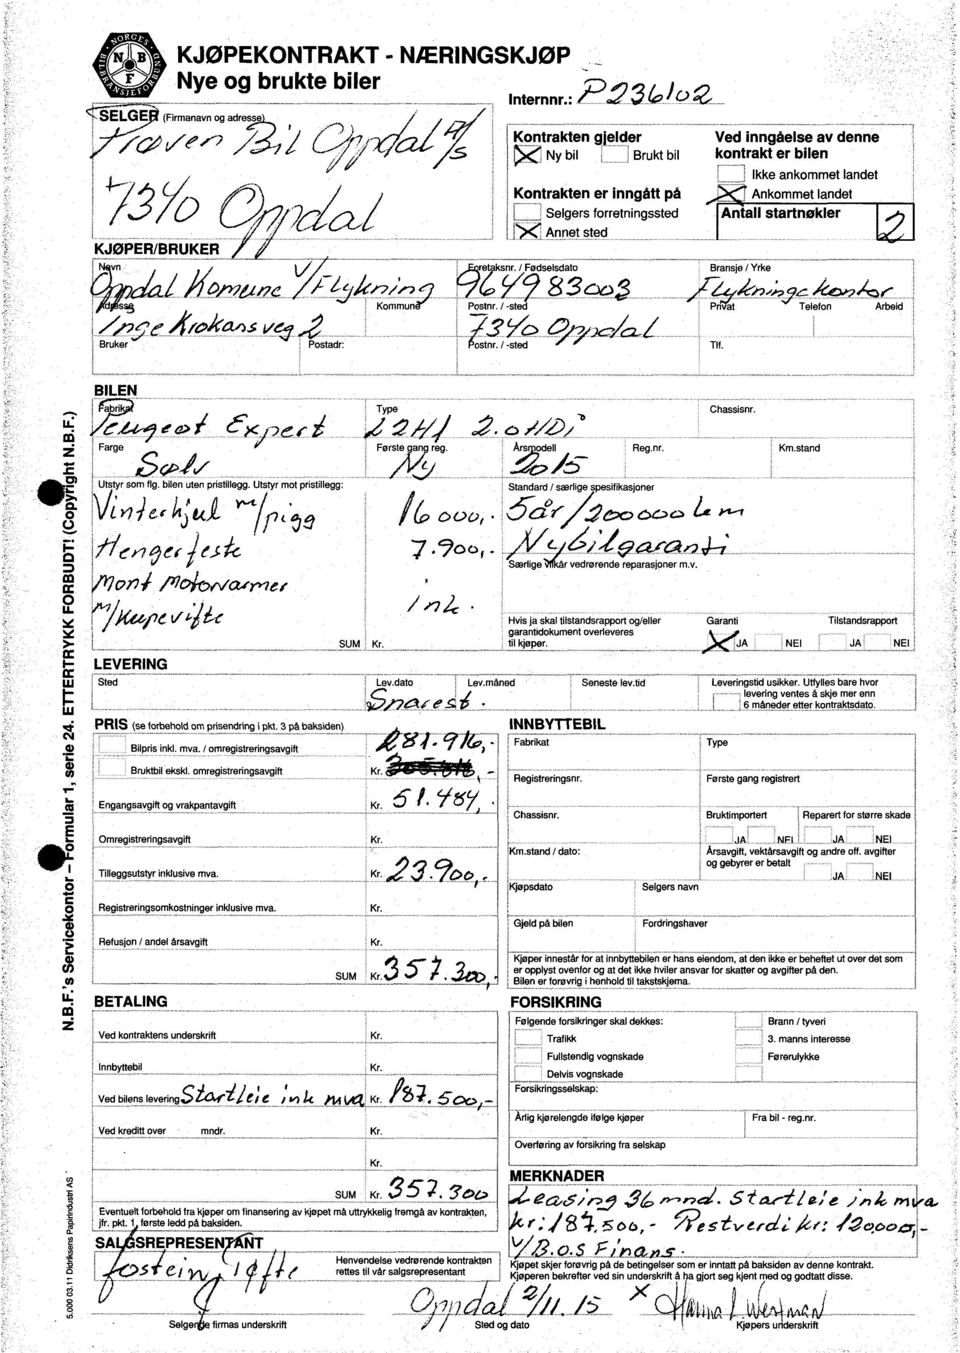 NORGES BILBRANSJEFORBUND
N B F
KJØPEKONTRAKT - NÆRINGSKJØP
Nye og brukte biler
Internnr.: P236102
SELGER (Firmanavn og adresse)
Bil Oppdal A/S
7340 Oppdal
Kontrakten gjelder
Ny bil Brukt bil
Kontrakten er inngått på
Selgers forretningssted
Annet sted
Ved inngåelse av denne
kontrakt er bilen
Ikke ankommet landet
Ankommet landet
Antall startnøkler 2
KJØPER/BRUKER
Navn Foretaksnr. / Fødselsdato Bransje / Yrke
Oppdal Komune V/Flykning 964983003 Flykningekontor
Adresse Kommune Postnr. / -sted Privat Telefon Arbeid
Inge Krokans veg 2 7340 Oppdal
Bruker Postadr: Postnr. / -sted Tlf.
BILEN
Fabrikat Type Chassisnr.
Peugeot Expert L2H1 2.0 HDi
Farge Første gang reg. Årsmodell Reg.nr. Km.stand
Sølv Ny 2015
Utstyr som flg. bilen uten pristillegg. Utstyr mot pristillegg: Standard / særlige spesifikasjoner
Vinterhjul m/pigg 16000,- 5år/200000 km
Hengerfeste 7.900,- Nybilgaranti
Særlige vilkår vedrørende reparasjoner m.v.
Mont Motorvarmer
m/kupevifte ink.
Hvis ja skal tilstandsrapport og/eller
garantidokument overleveres
til kjøper.
Garanti Tilstandsrapport
JA NEI JA NEI
SUM Kr.
LEVERING
Sted Lev.dato Lev.måned Seneste lev.tid
Snarest.
Leveringstid usikker. Utfylles bare hvor
levering ventes å skje mer enn
6 måneder etter kontraktsdato.
PRIS (se forbehold om prisendring i pkt. 3 på baksiden)
Bilpris inkl. mva. / omregistreringsavgift 281.916,-
Bruktbil ekskl. omregistreringsavgift Kr.
Engangsavgift og vrakpantavgift Kr. 51.484,-
Omregistreringsavgift Kr.
Tilleggsutstyr inklusive mva. Kr. 23.900,-
Registreringsomkostninger inklusive mva. Kr.
Refusjon / andel årsavgift Kr.
SUM Kr. 357.300,-
INNBYTTEBIL
Fabrikat Type
Registreringsnr. Første gang registrert
Chassisnr. Bruktimportert Reparert for større skade
JA NEI JA NEI
Km.stand / dato: Årsavgift, vektårsavgift og andre off. avgifter
og gebyrer er betalt
JA NEI
Kjøpsdato Selgers navn
Gjeld på bilen Fordringshaver
Kjøper innestår for at innbyttebilen er hans eiendom, at den ikke er beheftet ut over det som
er opplyst ovenfor og at det ikke hviler ansvar for skatter og avgifter på den.
Bilen er forøvrig i henhold til takstskjema.
BETALING
Ved kontraktens underskrift Kr.
Innbyttebil Kr.
Ved bilens levering Startleie ink mva Kr. 187.500,-
Ved kreditt over mndr. Kr.
Kr.
SUM Kr. 357.300
Eventuelt forbehold fra kjøper om finansering av kjøpet må uttrykkelig fremgå av kontrakten,
jfr. pkt. 1, første ledd på baksiden.
FORSIKRING
Følgende forsikringer skal dekkes: Brann / tyveri
Trafikk 3. manns interesse
Fullstendig vognskade Førerulykke
Delvis vognskade
Forsikringsselskap:
Årlig kjørelengde ifølge kjøper Fra bil - reg.nr.
Overføring av forsikring fra selskap
MERKNADER
Leasing 36 mnd. Startleie ink mva
kr: 187.500,- Restverdi kr: 120.000,-
V/B.O.S Finans.
Kjøpet skjer forøvrig på de betingelser som er inntatt på baksiden av denne kontrakt.
Kjøperen bekrefter ved sin underskrift å ha gjort seg kjent med og godtatt disse.
SALGSREPRESENTANT
Henvendelse vedrørende kontrakten
rettes til vår salgsrepresentant
Oppdal 2/11.15 X Hanna L. Westman
Selgende firmas underskrift Sted og dato Kjøpers underskrift
N.B.F.'s Servicekontor – Formular 1, serie 24. ETTERTRYKK FORBUDT! (Copyright N.B.F.)
5.000 03.11 Didriksens Papirindustri AS